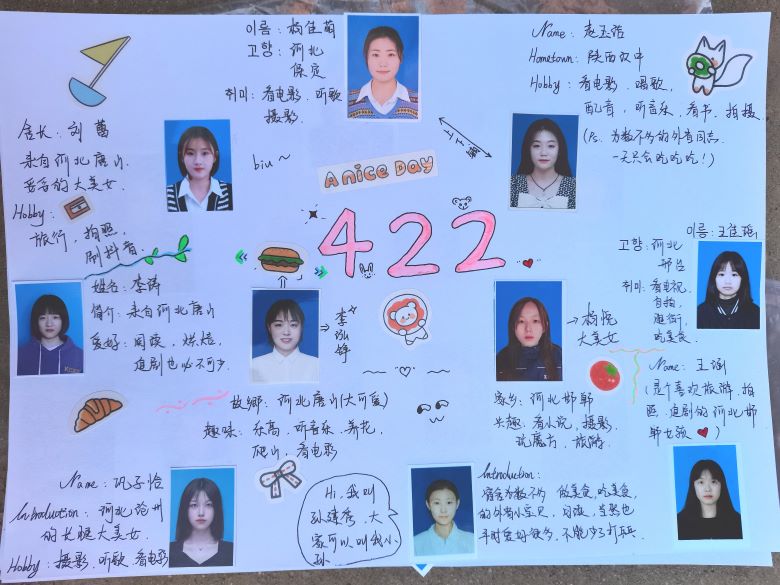 이름：杨佳萌
고향：河北
保定
취미：看电影、听歌
摄影.
Name：赵玉
Hometown：陕西汉中
Hobby：看电影、唱歌、
配音、听音乐、看书、拍摄
(Ps. 为数不多的外省同志.
一天只会吃吃吃！)
上下铺
舍长：刘
来自河北唐山
妥妥的大美女.
Hobby：
旅行、拍照、
刷抖音.
biu～
A nice Day
422
이름：王佳瑶
고향：河北
邢台
취미：看电视、
自拍、
逛街、
吃美食.
姓名：李涛
简介：来自河北唐山
爱好：阅读、烘焙、
追剧也必不可少.
⇒ 李泓铮
故郷：河北唐山(大可爱)
趣味：乐高、听音乐、养花、
爬山、看电影
→ 杨悦
大美女
家乡：河北邯郸
兴趣：看小说、摄影、
玩魔方、旅游.
Name：王涵
(是个喜欢旅游、拍
照、追剧的河北邯
郸女孩 )
Name：巩子怡
Introduction：河北沧州
的长腿大美女.
Hobby：摄影、听歌、看电影
Hi, 我叫
孙建秀，大
家可以叫我小
孙
Introduction：
宿舍为数不多 做美食，吃美食，
的外省小宝贝，阅读，当然也
平时爱好很多，不能少了打乒乓